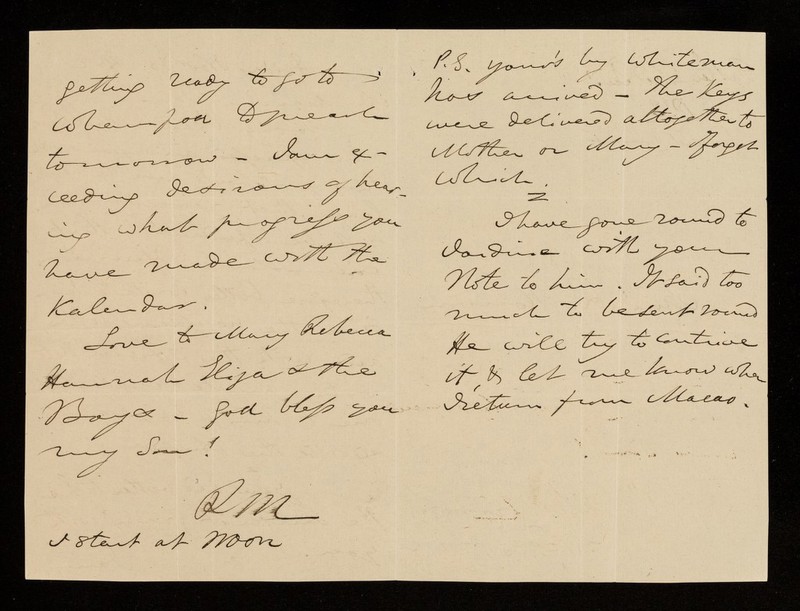 getting ready to go to
Whampoa to preach
tomorrow - I am ex-
ceeding desirous of hear-
ing what progress you
have made with the
Kalendar.
Love to Mary Rebecca
Hannah Eliza & the
Boys - God bless you
my Son!
RM
I start at Noon
P.S. your's by Whiteman
has arrived - The Keys
were delivered altogether to
Mother or Mary - I forget
which.
I have gone round to
Jardine with your
Note to him. It said too
much to be sent round
He will try to contrive
it, & let me know when
I return from Macao.